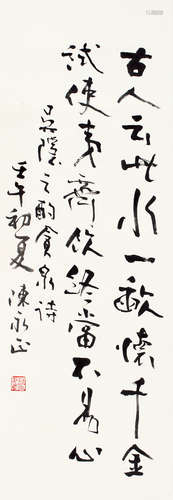 古人云此水一歃怀千金
试使夷齐饮终当不易心
吴隐之酌贪泉诗
壬午初夏 陈永正